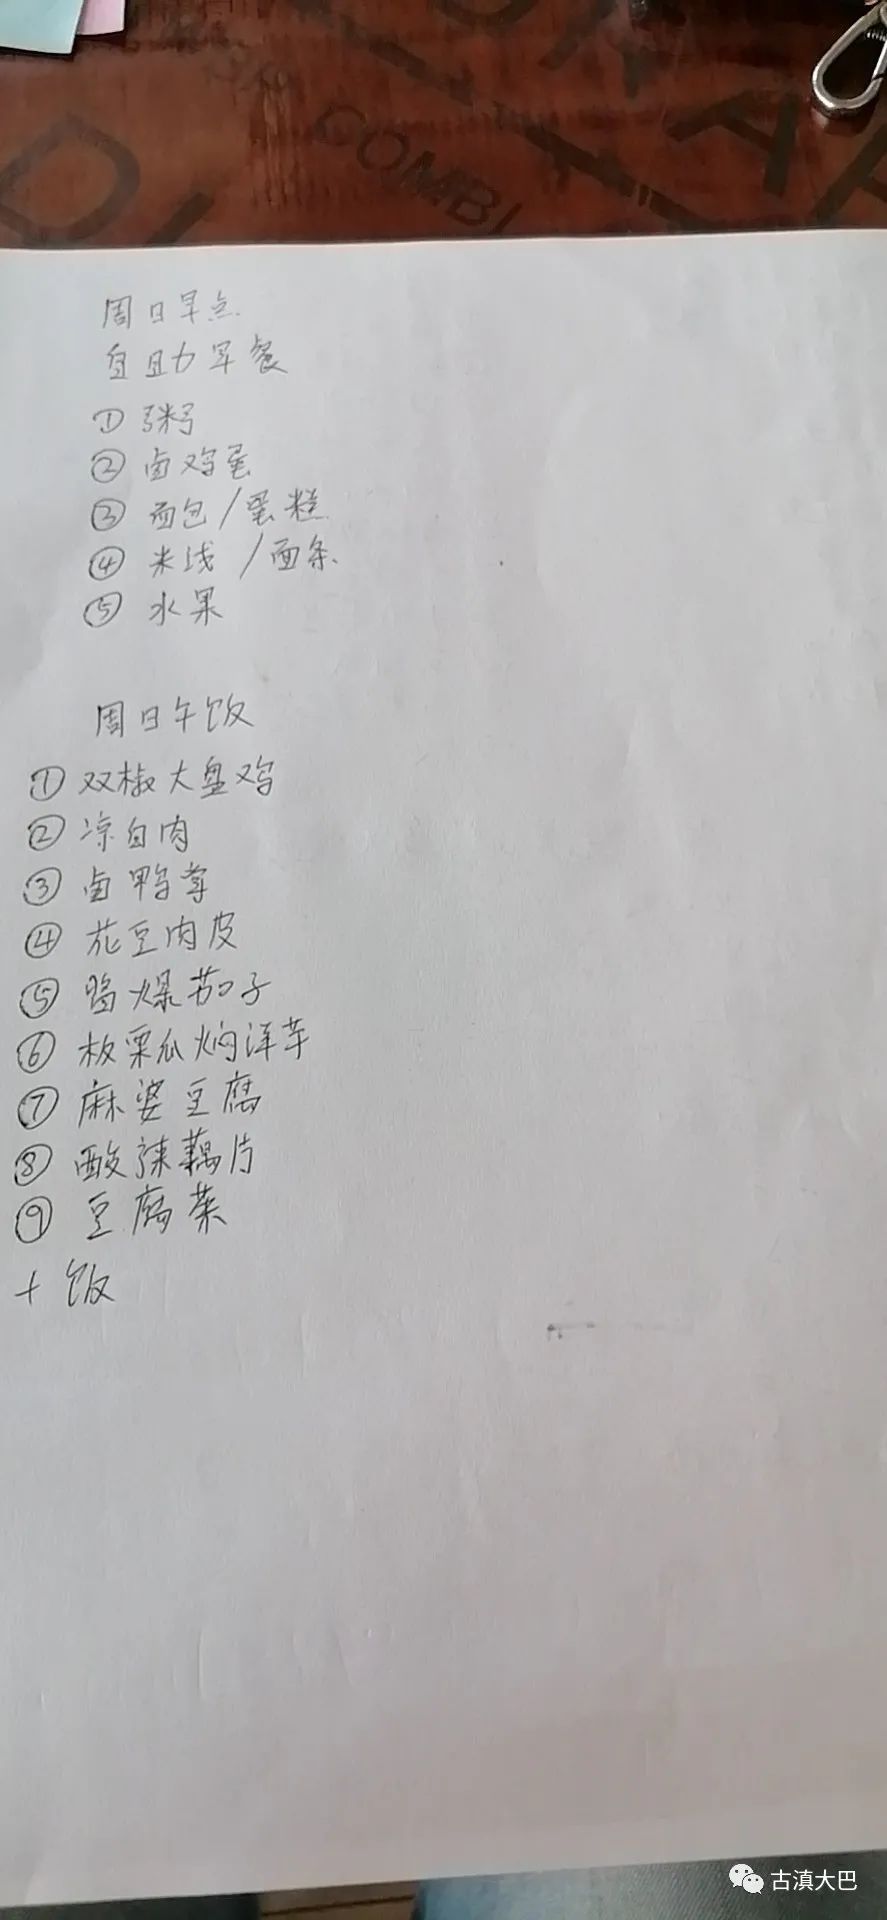 COMBI
周日早点
自助早餐
① 粥
② 卤鸡蛋
③ 面包/蛋糕
④ 米线/面条
⑤ 水果
周日午饭
① 双椒大盘鸡
② 凉白肉
③ 卤鸭掌
④ 花豆肉皮
⑤ 酱爆茄子
⑥ 板栗瓜焖洋芋
⑦ 麻婆豆腐
⑧ 酸辣藕片
⑨ 豆腐菜
+ 饭
古滇大巴